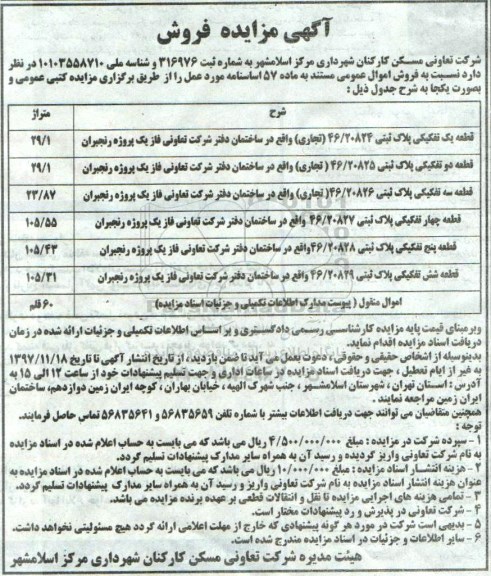 آگهی مزایده فروش
شرکت تعاونی مسکن کارکنان شهرداری مرکز اسلامشهر به شماره ثبت ۳۱۶۹۷۶ و شناسه ملی ۱۰۱۰۳۵۵۸۷۱۰ در نظر
دارد نسبت به فروش اموال عمومی مستند به ماده ۵۷ اساسنامه مورد عمل را از طریق برگزاری مزایده کتبی عمومی و
بصورت یکجا به شرح جدول ذیل :
شرح متراژ
قطعه یک تفکیکی پلاک ثبتی ۴۶/۲۰۸۲۴ (تجاری) واقع در ساختمان دفتر شرکت تعاونی فاز یک پروژه رنجبران ۲۹/۱
قطعه دو تفکیکی پلاک ثبتی ۴۶/۲۰۸۲۵ (تجاری) واقع در ساختمان دفتر شرکت تعاونی فاز یک پروژه رنجبران ۲۹/۱
قطعه سه تفکیکی پلاک ثبتی ۴۶/۲۰۸۲۶ (تجاری) واقع در ساختمان دفتر شرکت تعاونی فاز یک پروژه رنجبران ۲۳/۸۷
قطعه چهار تفکیکی پلاک ثبتی ۴۶/۲۰۸۲۷ واقع در ساختمان دفتر شرکت تعاونی فاز یک پروژه رنجبران ۱۰۵/۵۵
قطعه پنج تفکیکی پلاک ثبتی ۴۶/۲۰۸۲۸ واقع در ساختمان دفتر شرکت تعاونی فاز یک پروژه رنجبران ۱۰۵/۴۳
قطعه شش تفکیکی پلاک ثبتی ۴۶/۲۰۸۲۹ واقع در ساختمان دفتر شرکت تعاونی فاز یک پروژه رنجبران ۱۰۵/۳۱
اموال منقول ( پیوست مدارک اطلاعات تکمیلی و جزئیات اسناد مزایده) ۶۰ قلم
وبر مبنای قیمت پایه مزایده کارشناسی رسمی دادگستری و بر اساس اطلاعات تکمیلی و جزئیات ارائه شده در زمان
دریافت اسناد مزایده اقدام نماید.
بدینوسیله از اشخاص حقیقی و حقوقی ، دعوت بعمل می آید تا ضمن بازدید، از تاریخ انتشار آگهی تا تاریخ ۱۳۹۷/۱۱/۱۸
به غیر از ایام تعطیل ، جهت دریافت اسناد مزایده در ساعات اداری و جهت تسلیم پیشنهادات خود از ساعت ۱۲ الی ۱۵ به
آدرس : استان تهران ، شهرستان اسلامشهر ، جنب شهرک الهیه ، خیابان بهاران ، کوچه ایران زمین دوازدهم، ساختمان
ایران زمین مراجعه نمایند .
همچنین متقاضیان می توانند جهت دریافت اطلاعات بیشتر با شماره تلفن ۵۶۸۳۵۶۵۹ و ۵۶۸۳۵۶۴۱ تماس حاصل فرمایند.
توجه :
۱ - سپرده شرکت در مزایده : مبلغ ۴/۵۰۰/۰۰۰/۰۰۰ ریال می باشد که می بایست به حساب اعلام شده در اسناد مزایده
به نام شرکت تعاونی واریز گردیده و رسید آن به همراه سایر مدارک پیشنهادات تسلیم گردد.
۲ - هزینه انتشار اسناد مزایده : مبلغ ۱۰/۰۰۰/۰۰۰ ریال می باشد که می بایست به حساب اعلام شده در اسناد مزایده به
عنوان هزینه انتشار اسناد مزایده به نام شرکت تعاونی واریز و رسید آن به همراه سایر مدارک پیشنهادات تسلیم گردد.
۳ - تمامی هزینه های اجرایی مزایده تا نقل و انتقالات قطعی بر عهده برنده مزایده می باشد.
۴ - شرکت تعاونی در پذیرش و رد پیشنهادات مختار است.
۵ - بدیهی است شرکت در مورد هر گونه پیشنهادی که خارج از مهلت اعلامی ارائه گردد هیچ مسئولیتی نخواهد داشت.
۶ - سایر اطلاعات و جزئیات در اسناد مزایده مندرج شده است.
هیئت مدیره شرکت تعاونی مسکن کارکنان شهرداری مرکز اسلامشهر